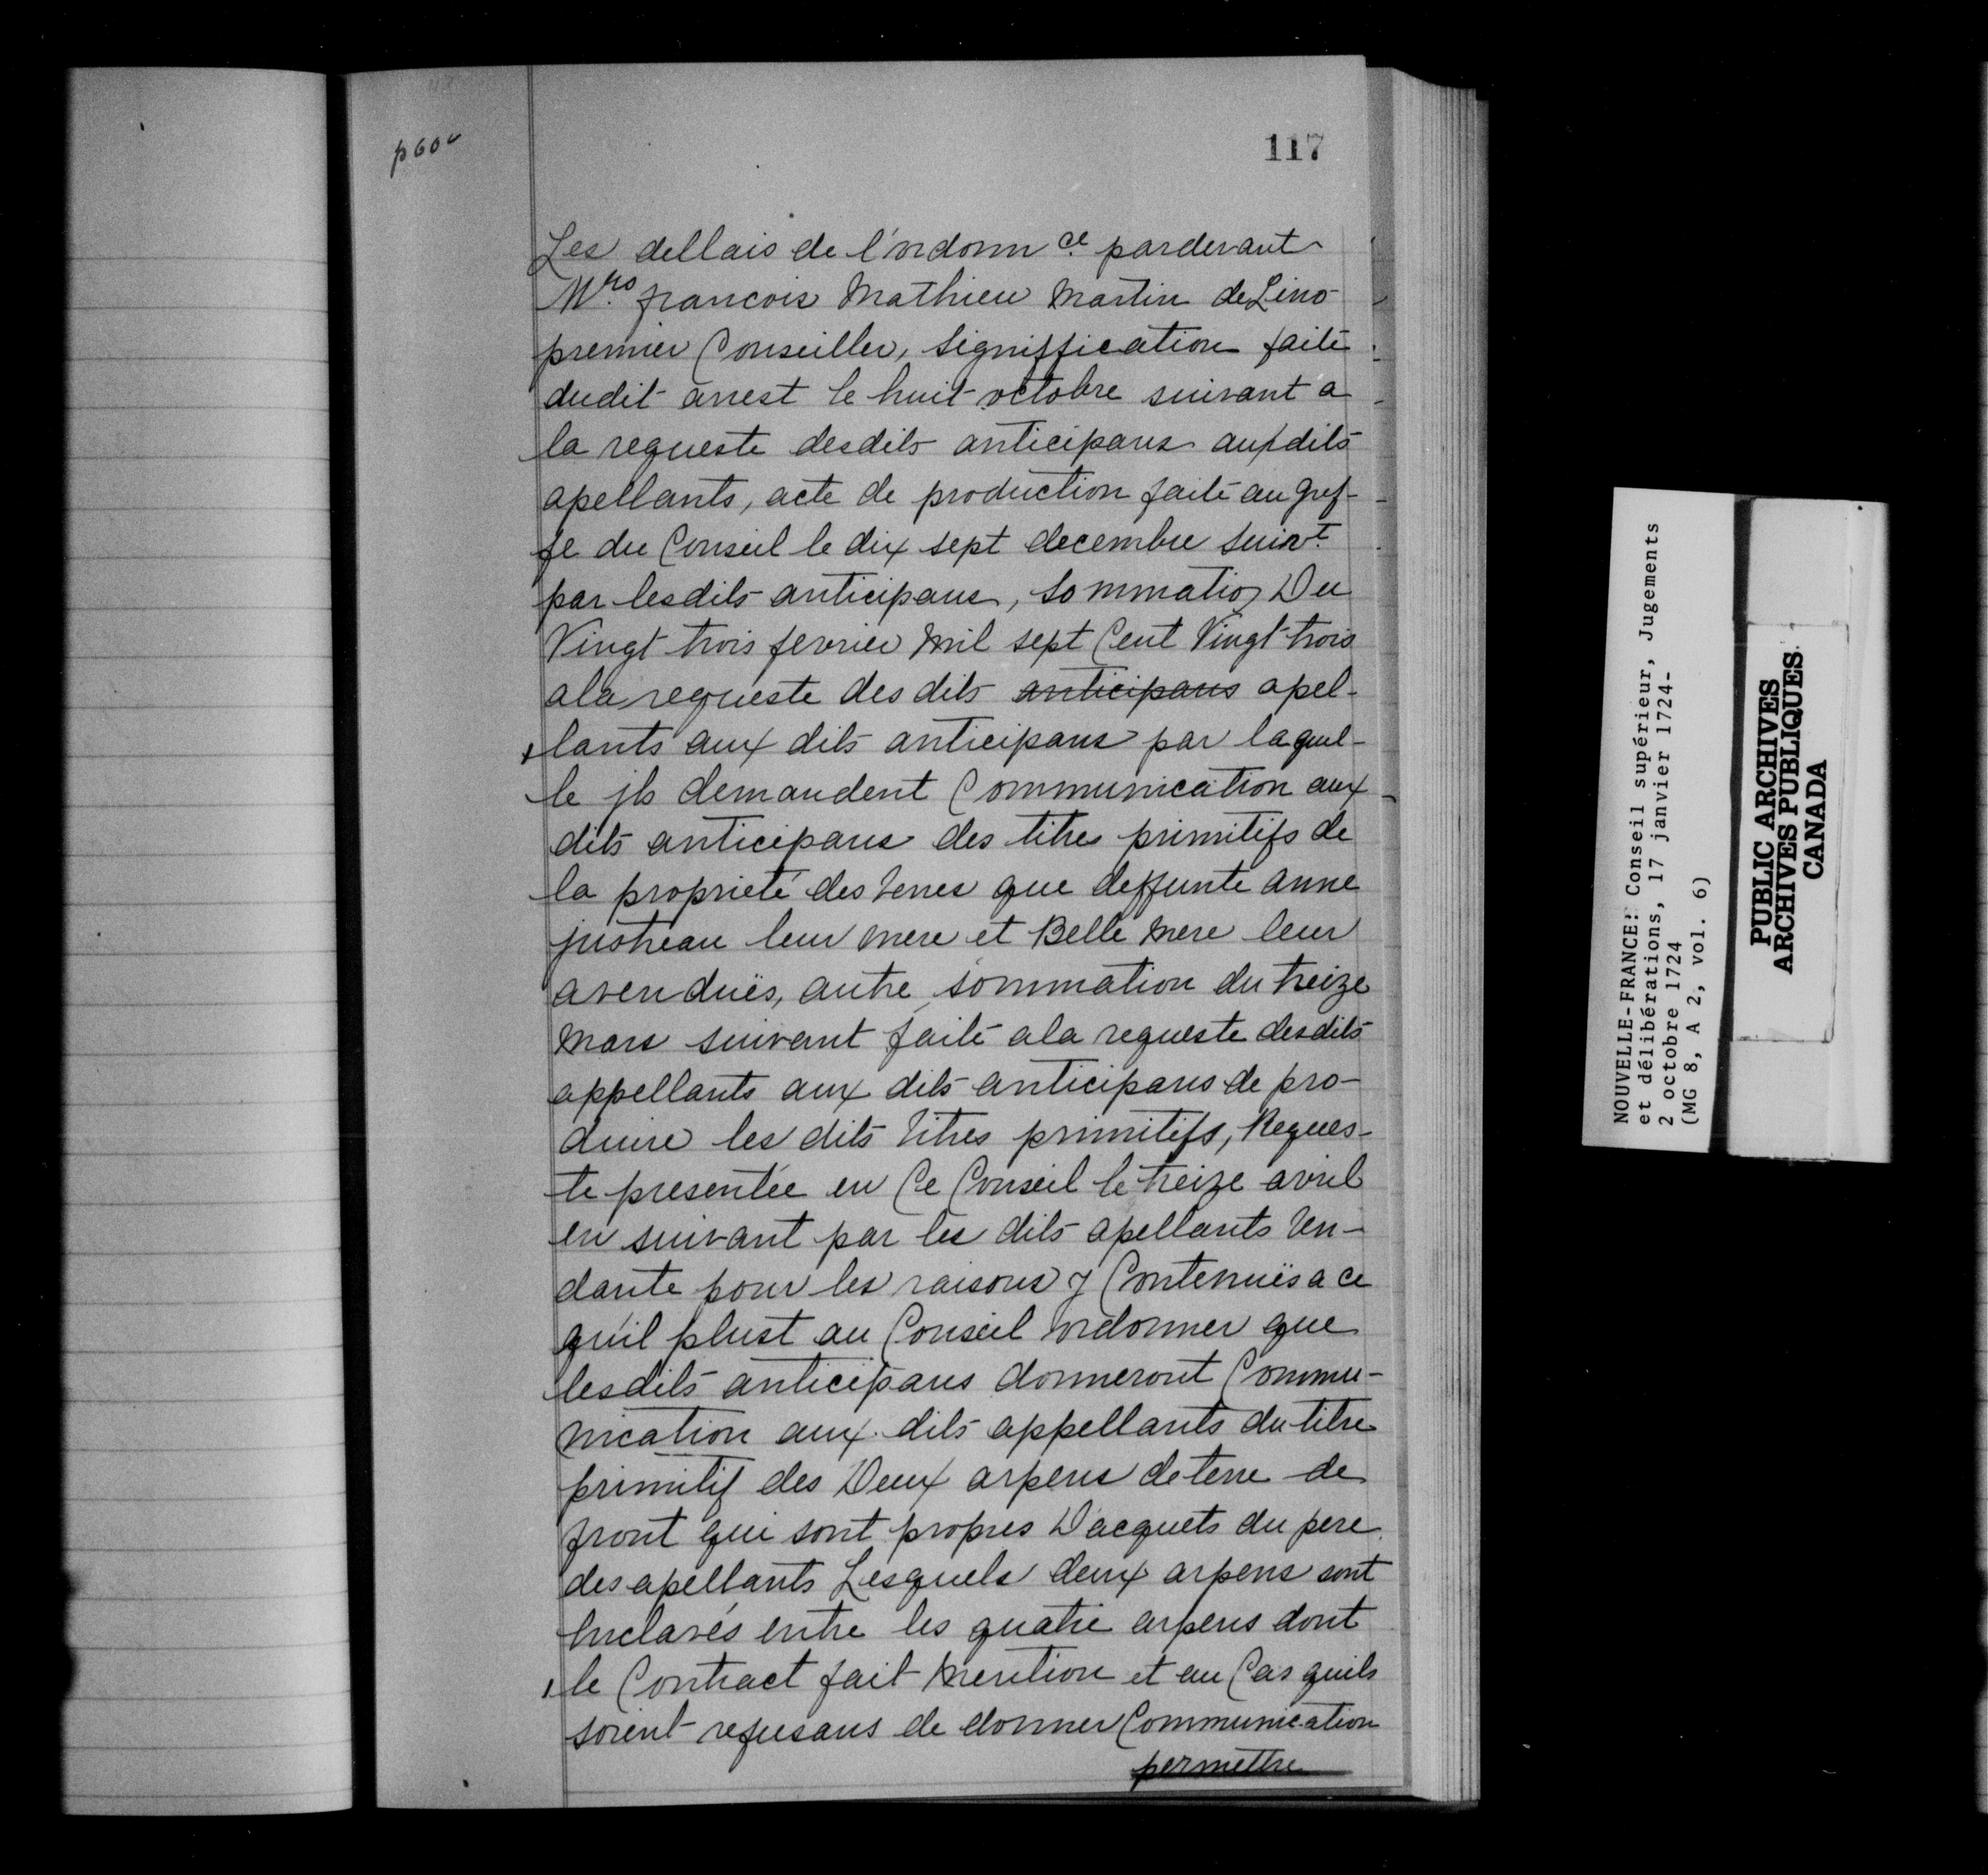 p 60v
117
Les dellais de l'ordonnce. pardevant
Mres. francois Mathieu Martin de Lino
premier Conseiller, Signiffication faite
dudit arrest le huit octobre suivant a
la requeste desdits anticipans auxdits
apellants, acte de production faite au gref-
fe du Conseil le dix sept decembre suivt.
par lesdits anticipans, sommation Du
Vingt trois fevrier Mil sept Cent Vingt trois
ala requeste des dits anticipans apel-
lants aux dits anticipans par laquel-
le jls demandent Communication aux
dits anticipans des titres primitifs de
la proprieté des terres que deffunte anne
justreau leur mere et Belle Mere leur
avenduës, autre sommation du treize
Mars suivant faite ala requeste desdits
appellants aux dits anticipans de pro-
duire les dits titres primitifs, Reques-
te presentée en Ce Conseil le treize avril
en suivant par les dits apellants ten-
dante pour les raisons y Contenuës a ce
qu'il plust au Conseil ordonner que
lesdits anticipans donneront Commu-
nication aux dits appellants du titre
primitif des Deux arpens de terre de
front qui sont propres D'acquets du pere
des apellants Lesquels deux arpens sont
Enclavés entre les quatre arpens dont
le Contract fait Mention et au Cas quils
soient refusans de donner Communication
permettre
NOUVELLE-FRANCE: Conseil supérieur, Jugements
et délibérations, 17 janvier 1724-
2 octobre 1724
(MG 8, A 2, vol. 6)
PUBLIC ARCHIVES
ARCHIVES PUBLIQUES
CANADA